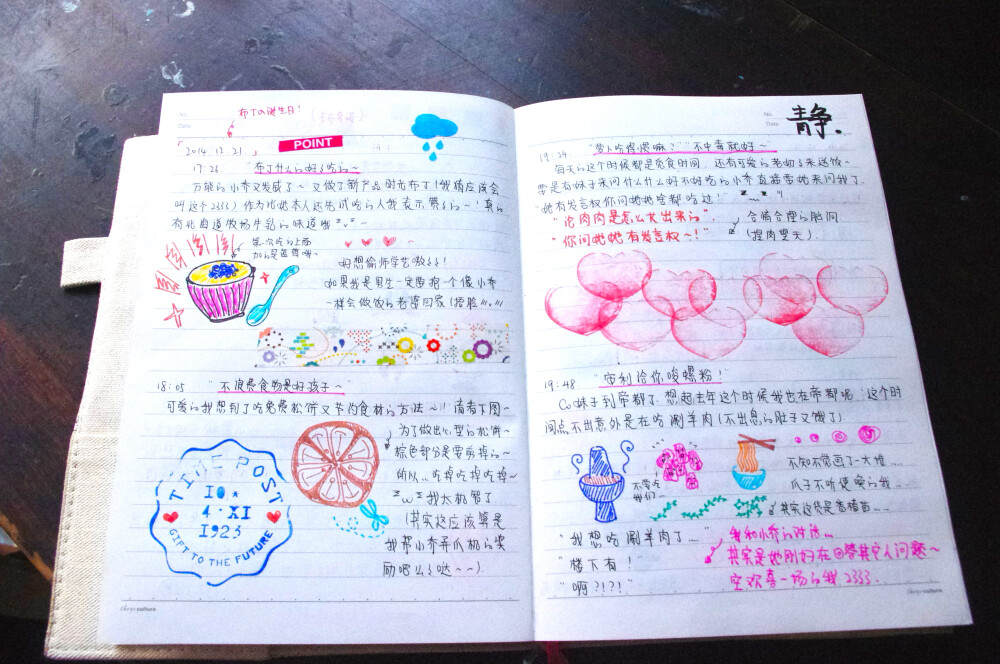 No.
Date
布丁の诞生日!
POINT
「2014.12.21.」
17:26 "布丁什么的好好吃的~"
万能的小乔又发威了~ 又做了新产品 时光布丁(我猜应该会
叫这个2333) 作为比她本人还先试吃的人我表示赞的~! 真的
有北海道牧场牛乳的味道哦~
第一次吃的上面
加的是蓝莓哦~
好想偷师学艺嗷
如果我是男生一定要抱一个像小乔
一样会做饭的老婆回家(捂脸
18:05 "不浪费食物是好孩子~
可爱的我想到了吃免费松饼又节约食材的方法~!! 请看下图~
为了做出心型的松饼~
棕色部分是要剪掉的~
所以..吃掉吃掉吃掉~
ˇωˇ 我太机智了
(其实这应该算是
我帮小乔弄爪机的奖
励吧么么哒~~)
TIME POST
10.*
4·XI
1923
GIFT TO THE FUTURE
culture
No.
Date
静.
19:24 "不中毒就好~
每天的这个时候都是觅食时间 还有可爱的老物业来送饭~
要是有妹子来问什么什么好不好吃的小乔直接带她来问我了.
"她有发言权你问她她啥都吃过!"
"论肉肉是怎么长出来的".
"你问她她有发言权~!"
合情合理的胎问
(捏肉望天)
19:48 "安利给你嗖螺粉!"
Co妹子到帝都了. 想起去年这个时候我也在帝都呢 这个时
间点不出意外是在吃涮羊肉(不出息的肚子又饿了)
不要吃
我们...
不知不觉画了一大堆....
爪子不听使唤的我...
其实这货是香菜苗...
"我想吃涮羊肉了..."
"楼下有!
"啊?!?!"
我和小乔的对话...
其实是她刚好在回答其它人问题~
空欢喜一场的我2333.
culture